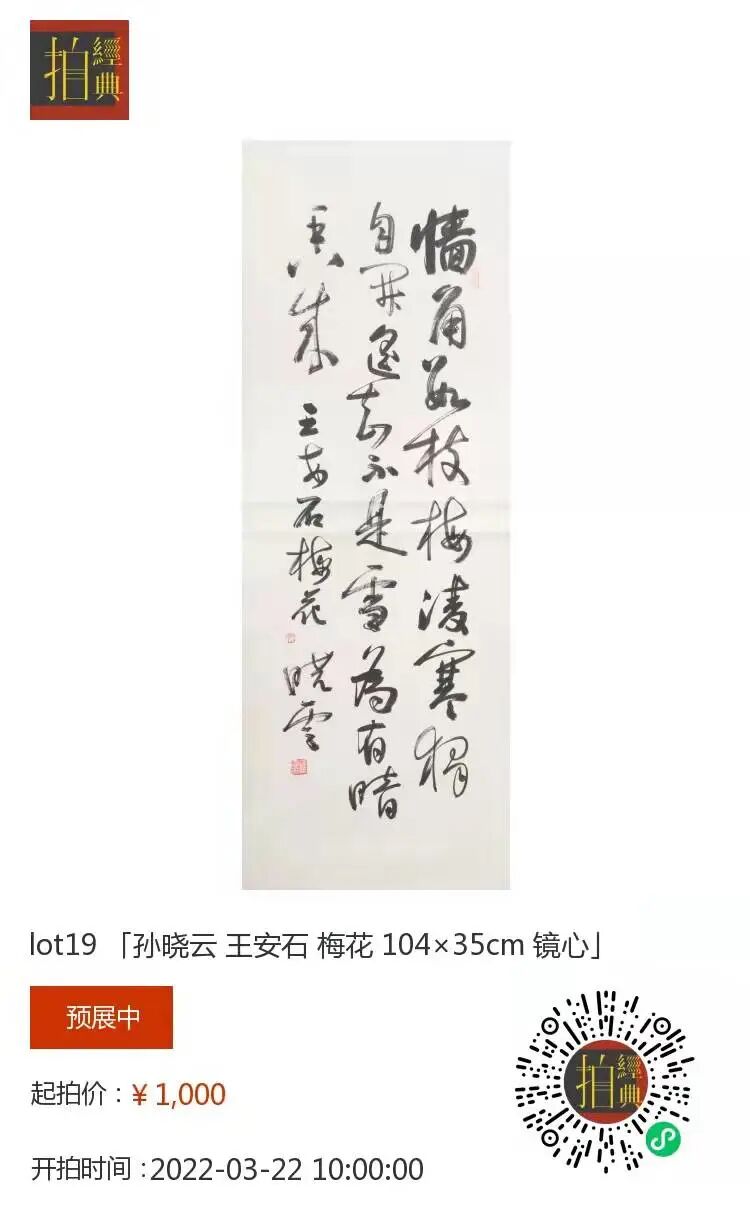 經典拍
墙角数枝梅凌寒独
自开遥知不是雪為有暗
香来 王安石梅花 晓雲
lot19 「孙晓云 王安石 梅花 104×35cm 镜心」
预展中
起拍价：¥ 1,000
开拍时间：2022-03-22 10:00:00
經典拍